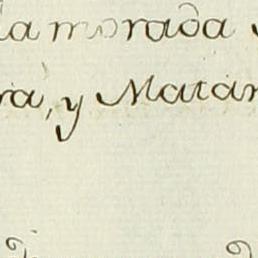 la morada
ra, y Matan